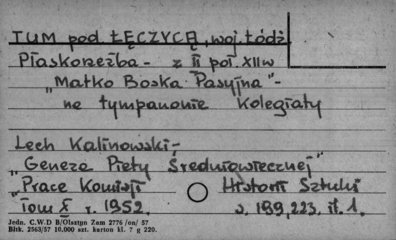 TUM pod ŁĘCZYCĄ, woj. Łódź.
Płaskorzeźba - z II poł XII w
"Matka Boska Pasyjna" -
na tympanonie Kolegiaty
Lech Kalinowski -
"Geneza Piety Średniowiecznej"
"Prace Komisji Historii Sztuki
Tom X r. 1952. s. 199, 223, il. 1.
Jedn. C.W D B/Olsztyn Zam 2776 /on/ 57
Bilt. 2563/57 10.000 szt. karton kl. 7 g 220.